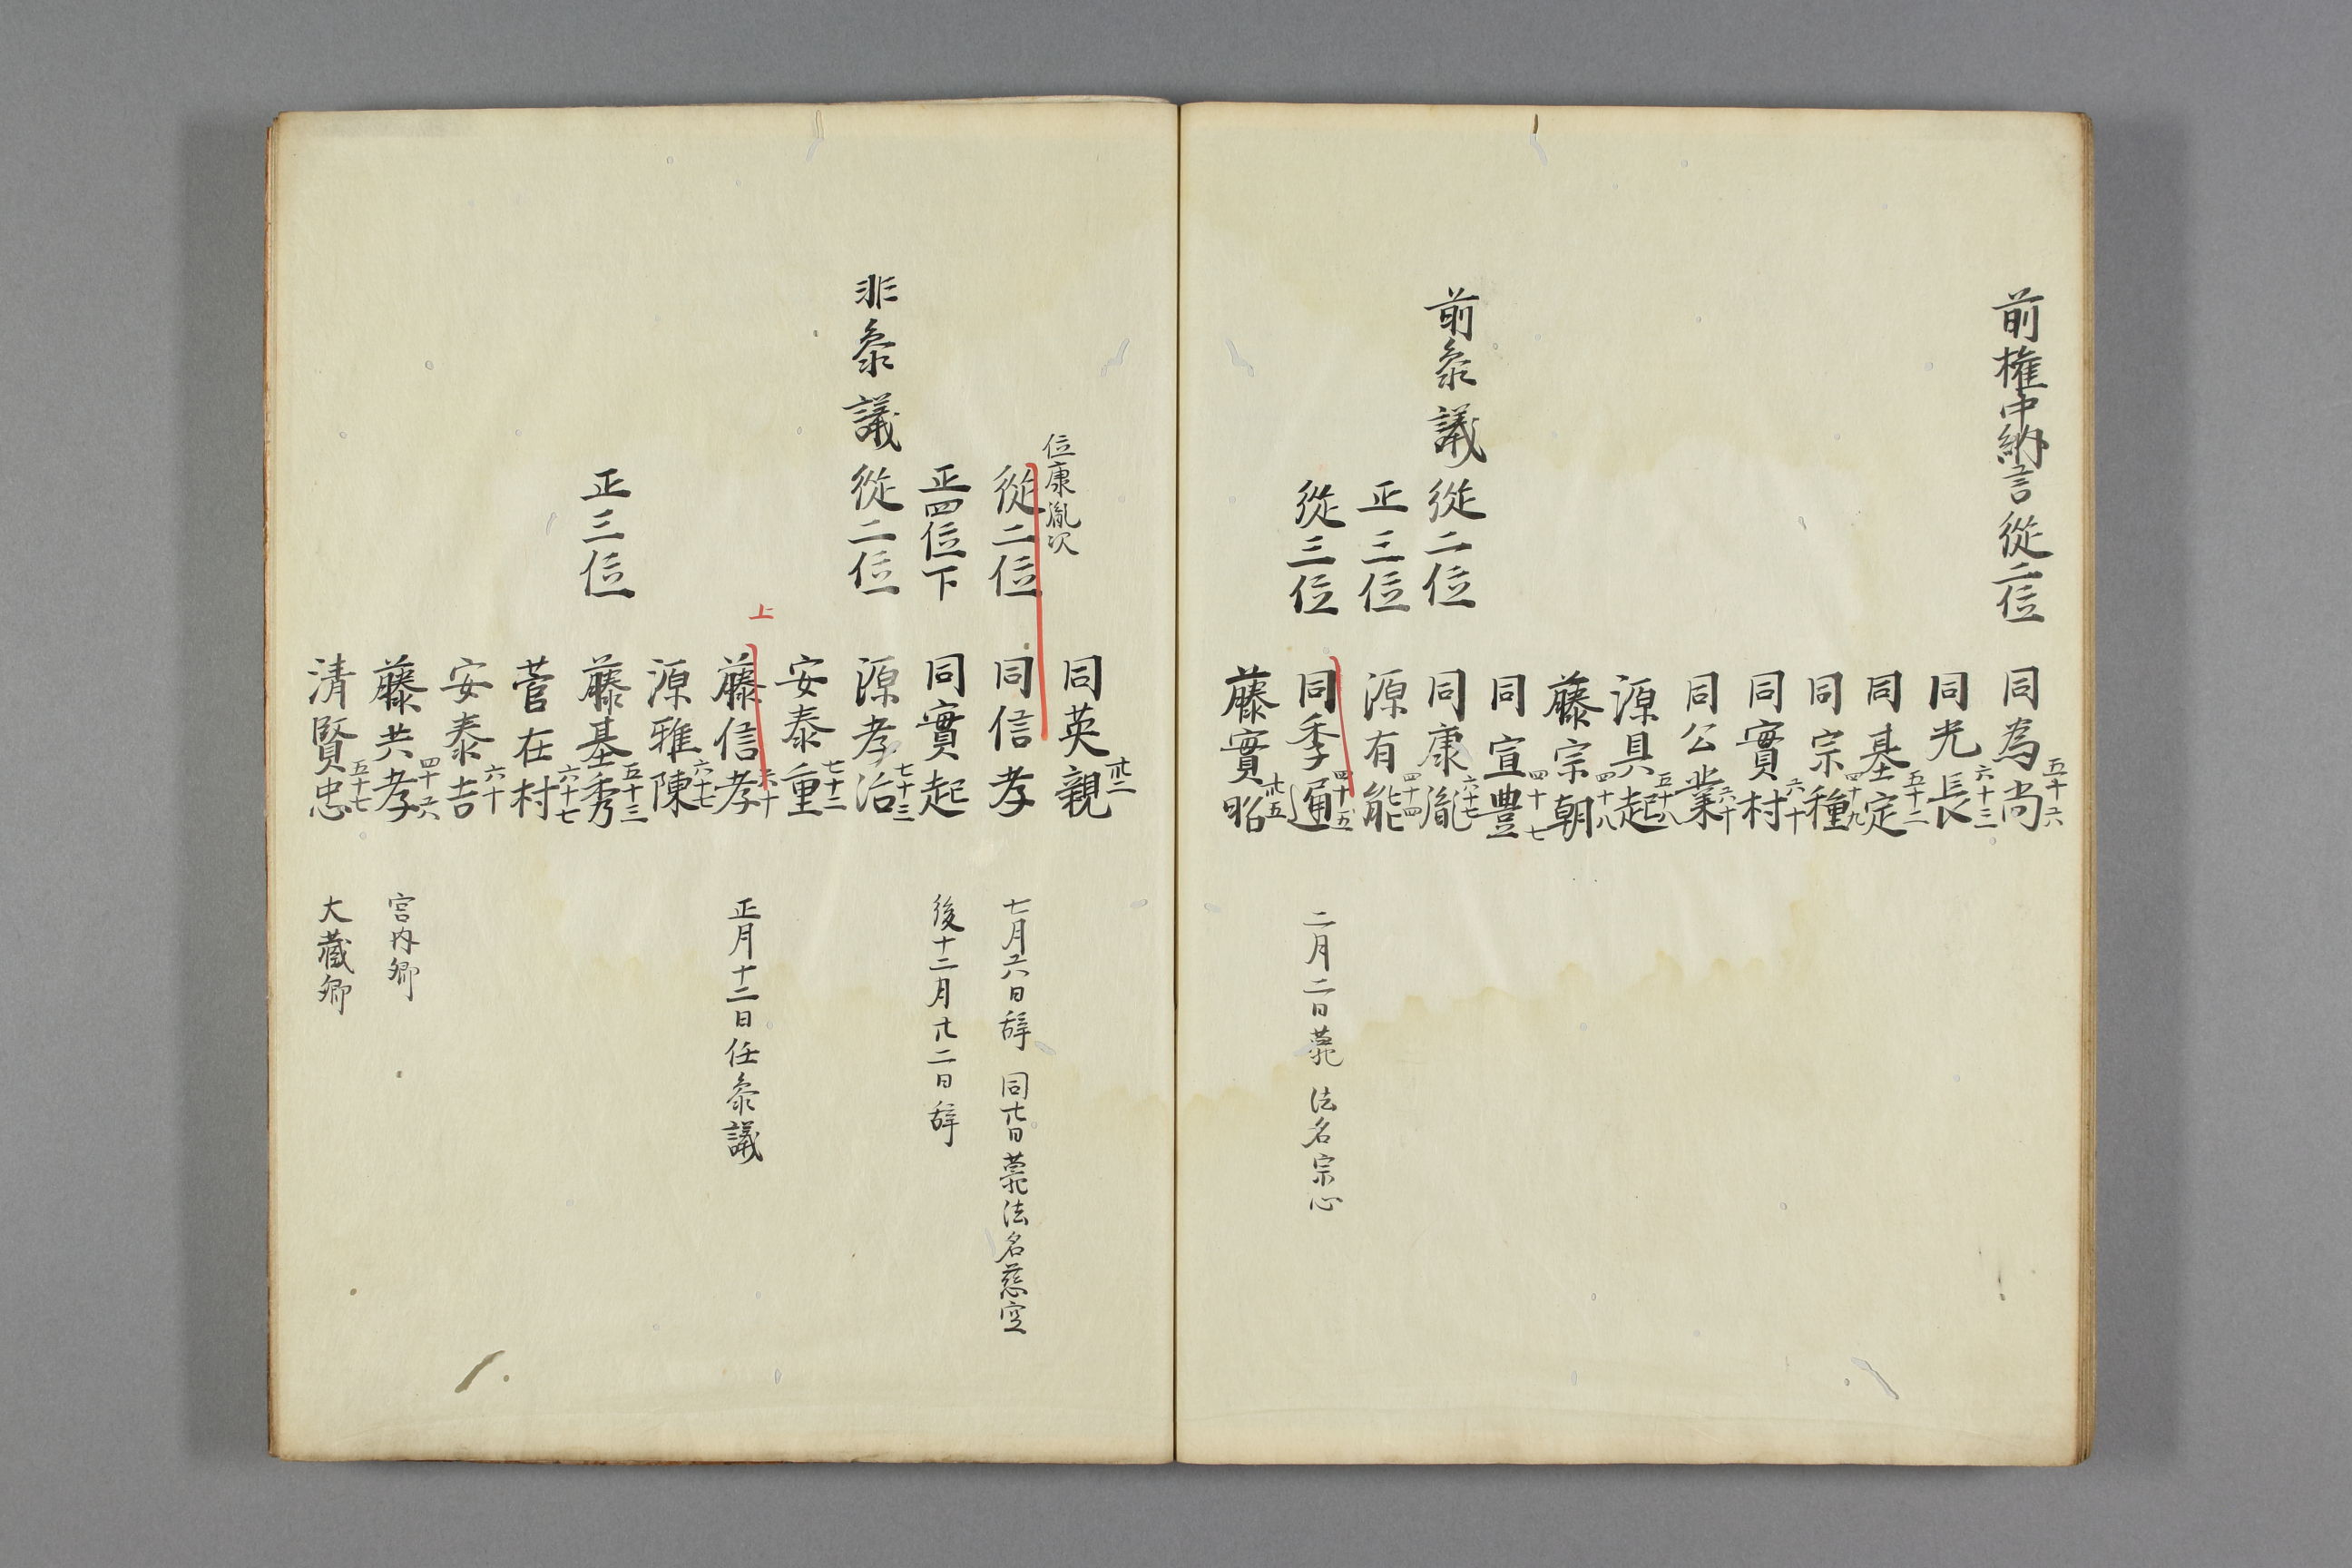 前権中納言従二位 同為尚五十六
同光長六十三
同基定五十二
同宗種四十九
同實村六十
同公業六十
源具起五十八
藤宗朝四十八
同宣豊四十七
前叅議従二位 同康胤六十七
正三位 源有能四十四
従三位 同季通四十五 二月二日薨 法名宗心
藤實昭卅五
同英親卅二
位康胤次
従二位 同信孝 七月六日辞 同日薨法名慈空
正四位下 同實起 後十二月廿二日辞
非叅議従二位 源孝治七十三
安泰重七十二
上
藤信孝 正月十二日任叅議
源雅陳六十七
正三位 藤基秀五十三
菅在村六十七
安泰吉六十
藤共孝四十六 宮内卿
清賢忠五十七 大蔵卿